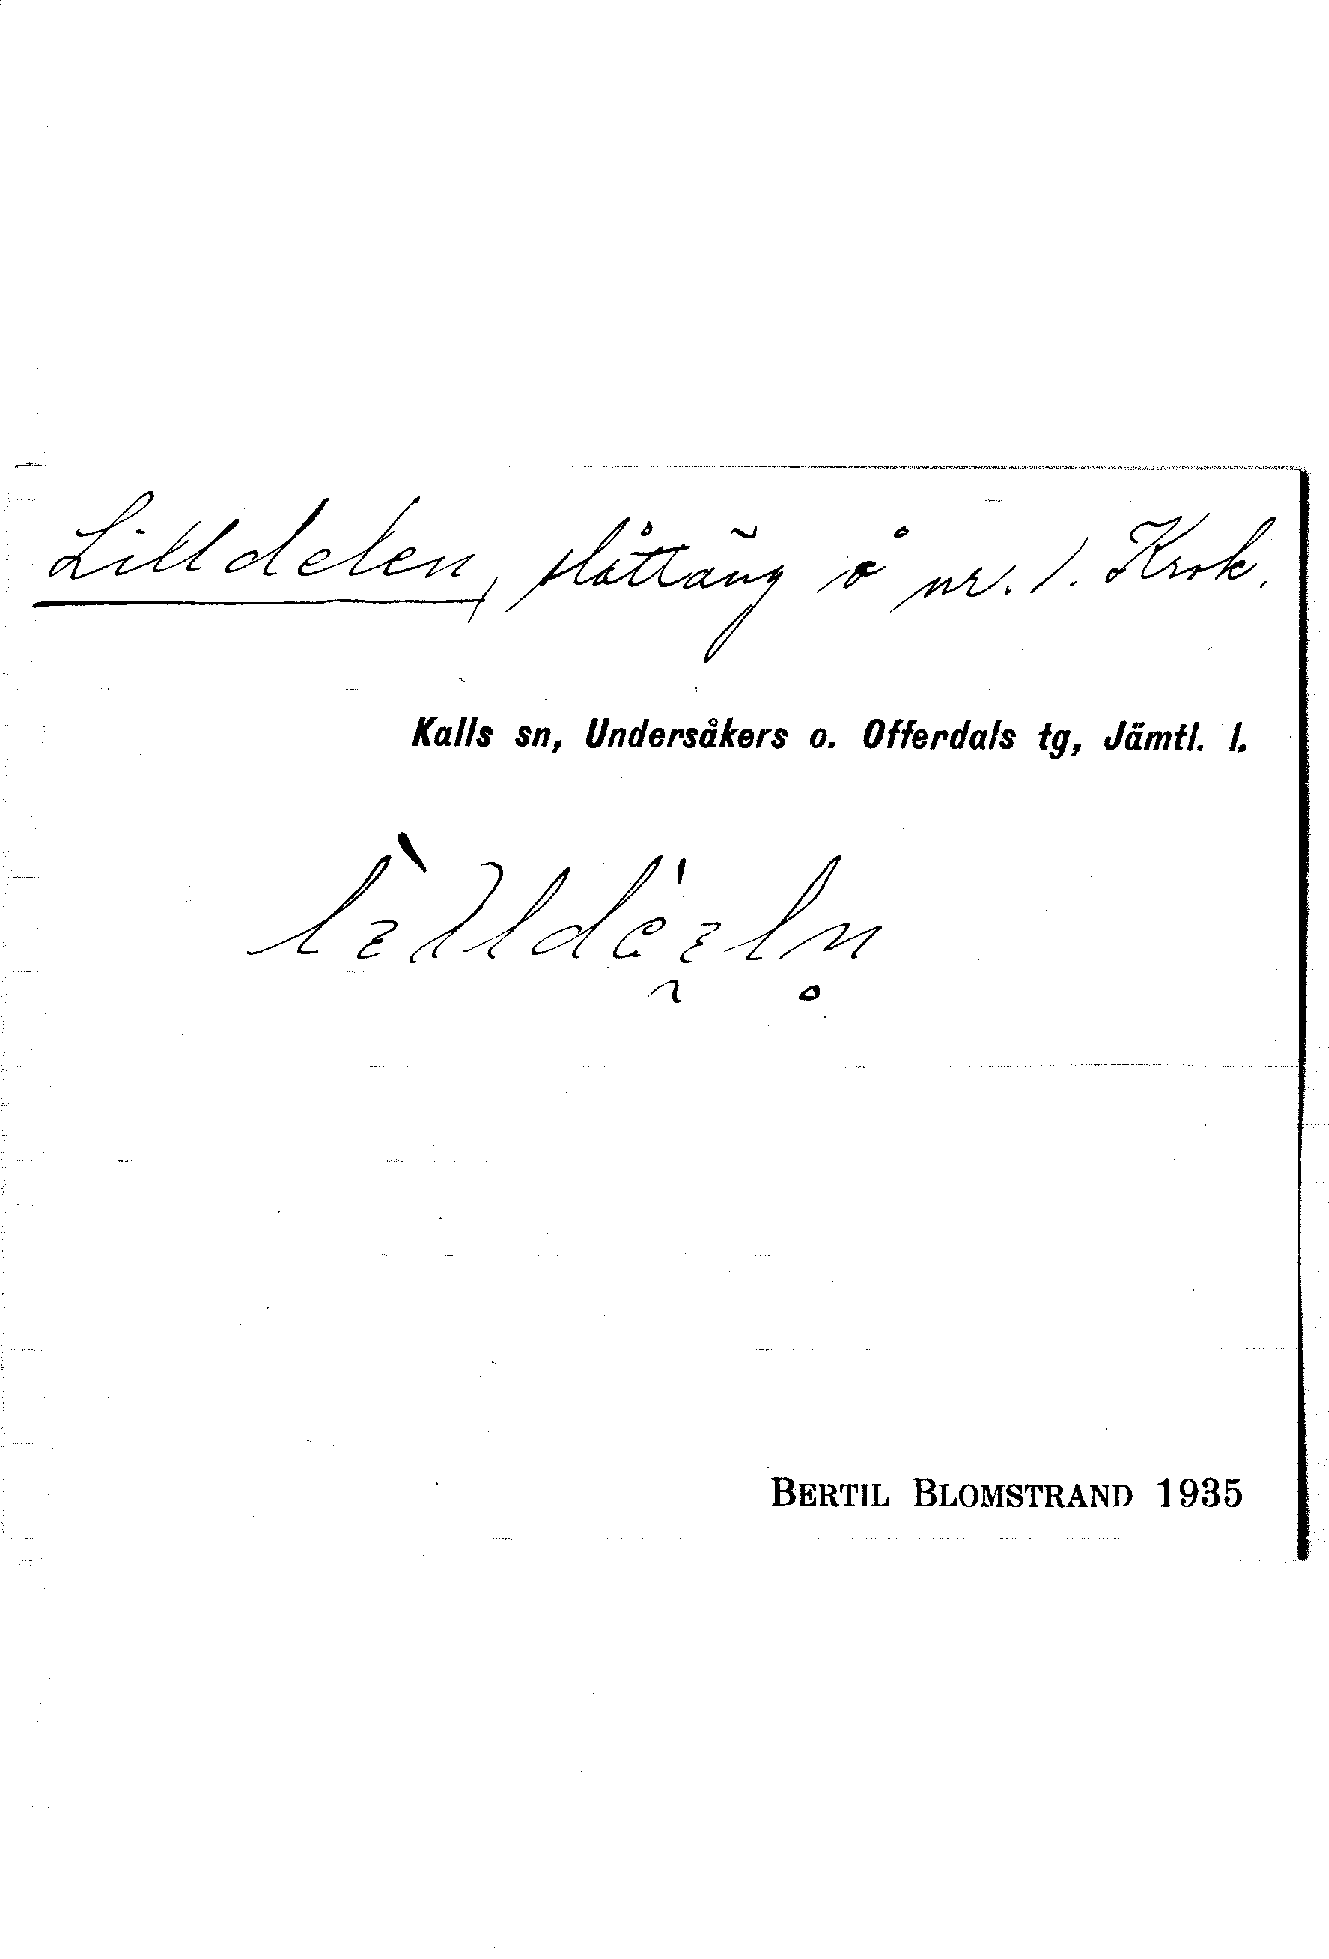 Lilldelen, slåttäng å nr. 1. Krok.
Kalls sn, Undersåkers o. Offerdals tg, Jämtl. l.
BERTIL BLOMSTRAND 1935